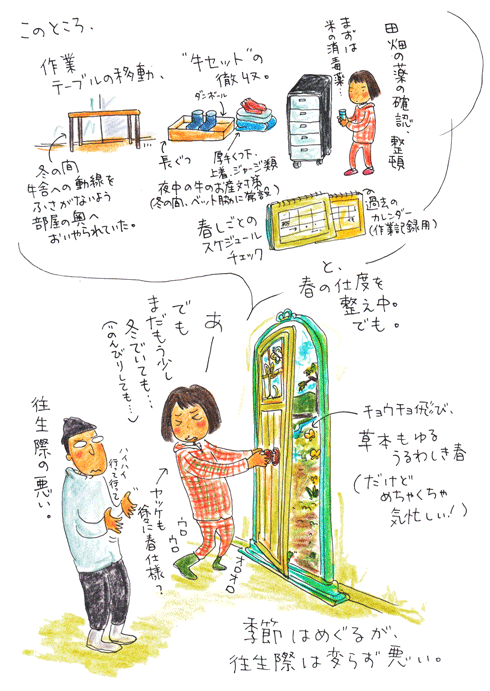 このところ、
作業
テーブルの移動、
冬の間
牛舎への動線を
ふさがないよう
部屋の奥へ
おいやられていた。
"牛セット"の
撤収。
ダンボール
長ぐつ
厚手くつ下、
上着、ジャージ類
夜中の牛のお産対策
(冬の間、ベット脇に常設)
田畑の薬の確認、整頓
まずは
米の消毒薬…
春しごとの
スケジュール
チェック
過去の
カレンダー
(作業記録用)
と、
春の仕度を
整え中。
でも。
あ
でも
まだもう少し
冬でいても…
(のんびりしても…)
往生際の悪い。
ハイハイ
行って行って
ヤッケも
すでに春仕様?
ウロ
ウロ
オロオロ
チョウチョ飛び、
草木もゆる
うるわしき春
(だけど
めちゃくちゃ
気忙しい!)
季節はめぐるが、
往生際は変らず悪い。